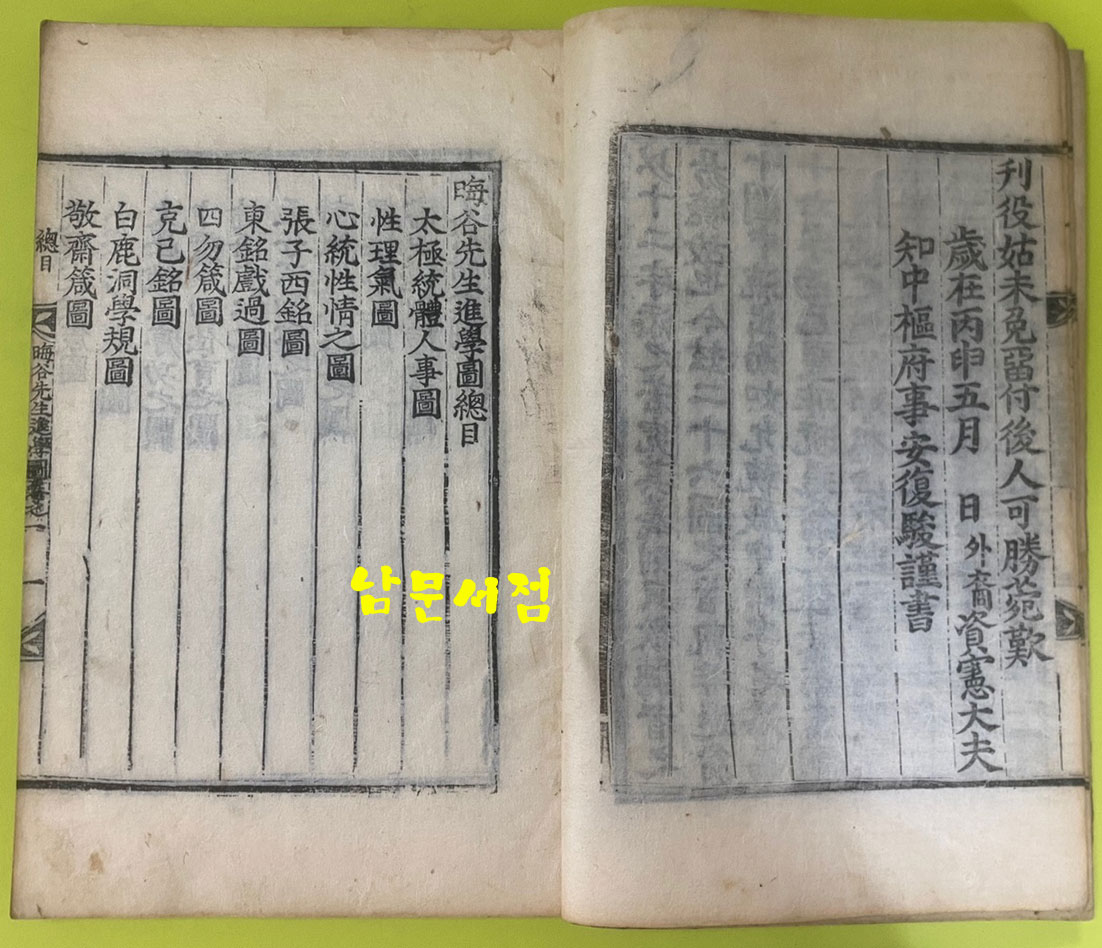 刊役姑未免畱付後人可勝菀歎
歲在丙申五月 日外裔資憲大夫
知中樞府事安復駿謹書
晦谷先生進學圖總目
太極統體人事圖
性理氣圖
心統性情之圖
張子西銘圖
東銘戲過圖
四勿箴圖
克己銘圖
白鹿洞學規圖
敬齋箴圖
總目
晦谷先生進學圖卷之一
一
남문서점